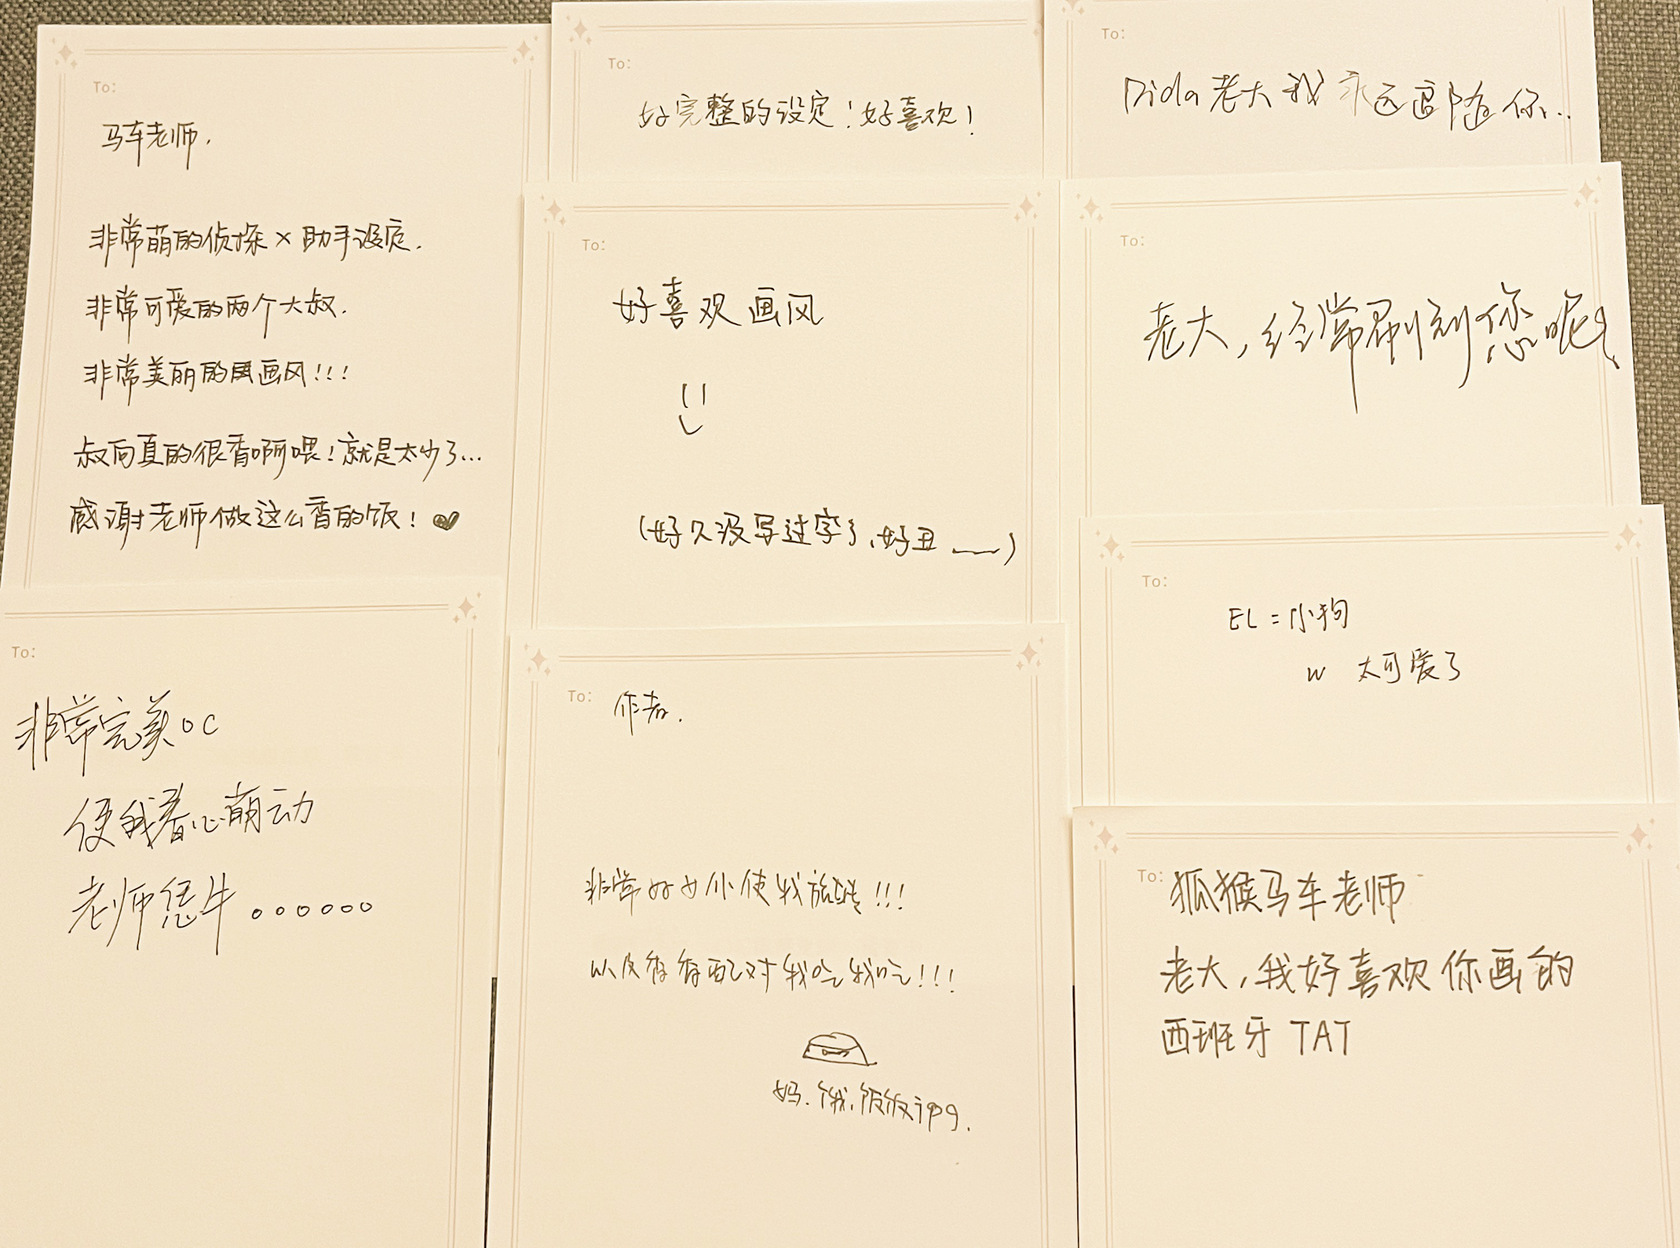 To:
马车老师.
非常萌的侦探×助手设定.
非常可爱的两个大叔.
非常美丽的画风!!!
叔向真的很香啊喂!就是太少了...
感谢老师做这么香的饭!
To:
好完整的设定!好喜欢!
To:
Dida老大我永远追随你...
To:
好喜欢画风
(好久没写过字了,好丑 __)
To:
老大,经常刷到您呢
To:
EL=小狗
w 太可爱了
To:
非常完美oc
使我春心萌动
老师恁牛。。。。。。
To: 作者.
非常好女仆使我旋转!!!
以及香香配对我吃我吃!!!
妈.饿.饭饭jpg.
To: 狐猴马车老师
老大,我好喜欢你画的
西班牙 TAT